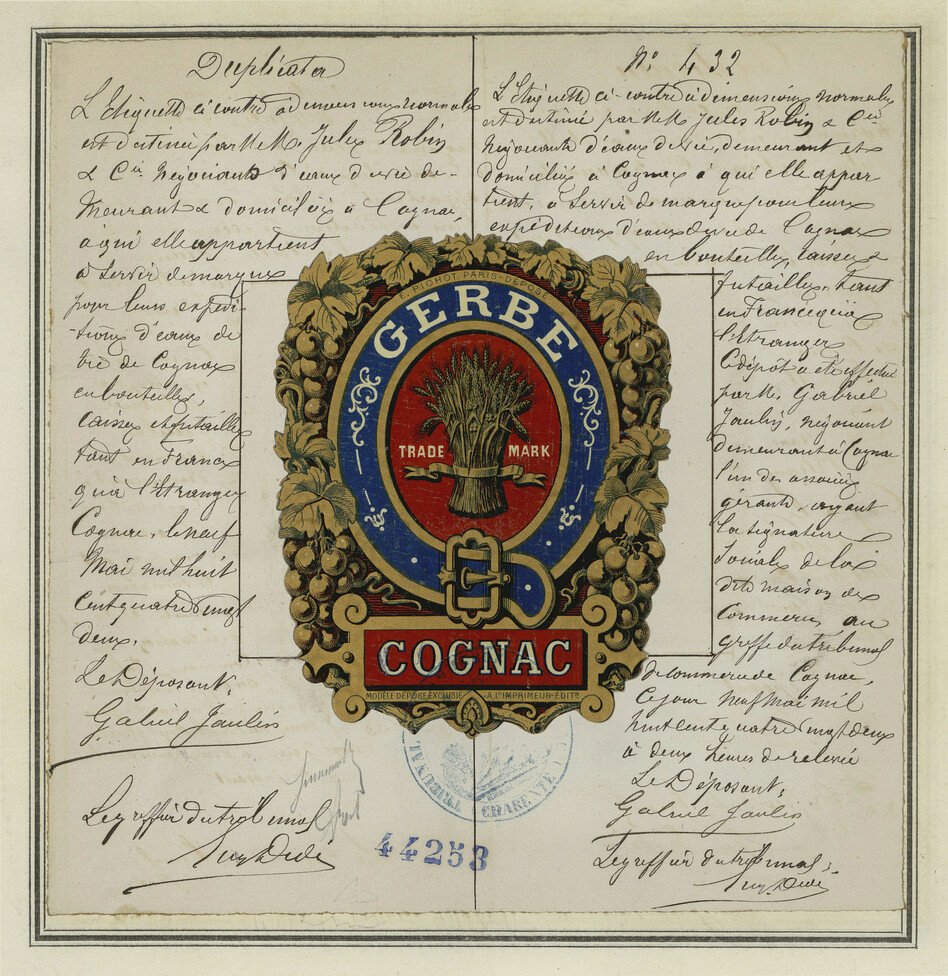 Duplicata
L'Etiquette ci contre à dimensions normales
est destinée par MM. Jules Robin
& Cie Négociants d'eaux de vie de-
meurant & domiciliés à Cognac,
à qui elle appartient
à servir de marque
pour leurs expédi-
-tions d'eaux de
vie de Cognac
en bouteilles,
caisses & futailles
tant en France
qu'à l'Etranger
Cognac, le neuf
Mai mil huit
cent quatre vingt
deux.
Le Déposant,
Gabriel Jaulin
Le greffier du tribunal
No 432
L'Etiquette ci-contre à dimensions normales
est destinée par MM Jules Robin & Cie
Négociants d'eaux de vie, demeurant et
domiciliés à Cognac à qui elle appar
tient, à servir de marque pour leurs
expéditions d'eaux de vie de Cognac
en bouteilles, caisses &
futailles, tant
en France qu'à
l'Etranger
Ce dépôt a été effectué
par M. Gabriel
Jaulin, négociant
demeurant à Cognac
l'un des associés
gérants, ayant
la signature
sociale de la
dite maison de
Commerce, au
greffe du tribunal
de commerce de Cognac,
ce jour neuf mai mil
huit cent quatre vingt deux
à deux heures de relevée
Le Déposant,
Gabriel Jaulin
Le greffier du tribunal,
E. PICHOT. PARIS-DÉPOSÉ
GERBE
TRADE MARK
COGNAC
MODÈLE DÉPOSÉ EXCLUSIF A L'IMPRIMEUR-EDITR
TRIBUNAL
CHARENTE
44253